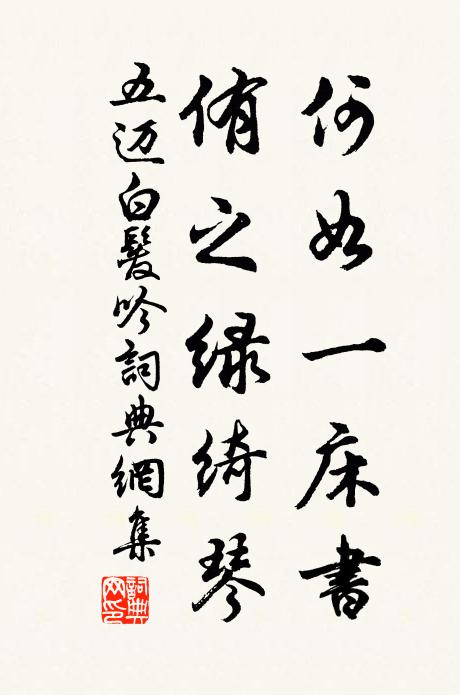 何如一床書
侑之绿绮琴
五迈白髮吟詞典網集
詞典網印